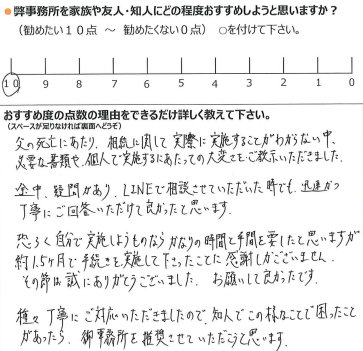 ●弊事務所を家族や友人・知人にどの程度おすすめしようと思いますか?
(勧めたい10点 ～ 勧めたくない0点) ○を付けて下さい。
10 9 8 7 6 5 4 3 2 1 0
おすすめ度の点数の理由をできるだけ詳しく教えて下さい。
(スペースが足りなければ裏面へどうぞ)
父の死亡にあたり、相続に関して実際に実施することがわからない中、
必要な書類や、個人で実施するにあたっての大変さもご教示いただきました。
途中、疑問があり、LINEで相談させていただいた時でも、迅速かつ
丁寧にご回答いただけて良かったと思います。
恐らく自分で実施しようものならかなりの時間と手間を要したと思いますが
約1.5ヶ月で手続きを実施して下さったことに感謝しかございません。
その節は誠にありがとうございました。お願いして良かったです。
種々丁寧にご対応いただきましたので、知人でこの様なことで困ったことが
あったら、御事務所を推奨させていただこうと思います。